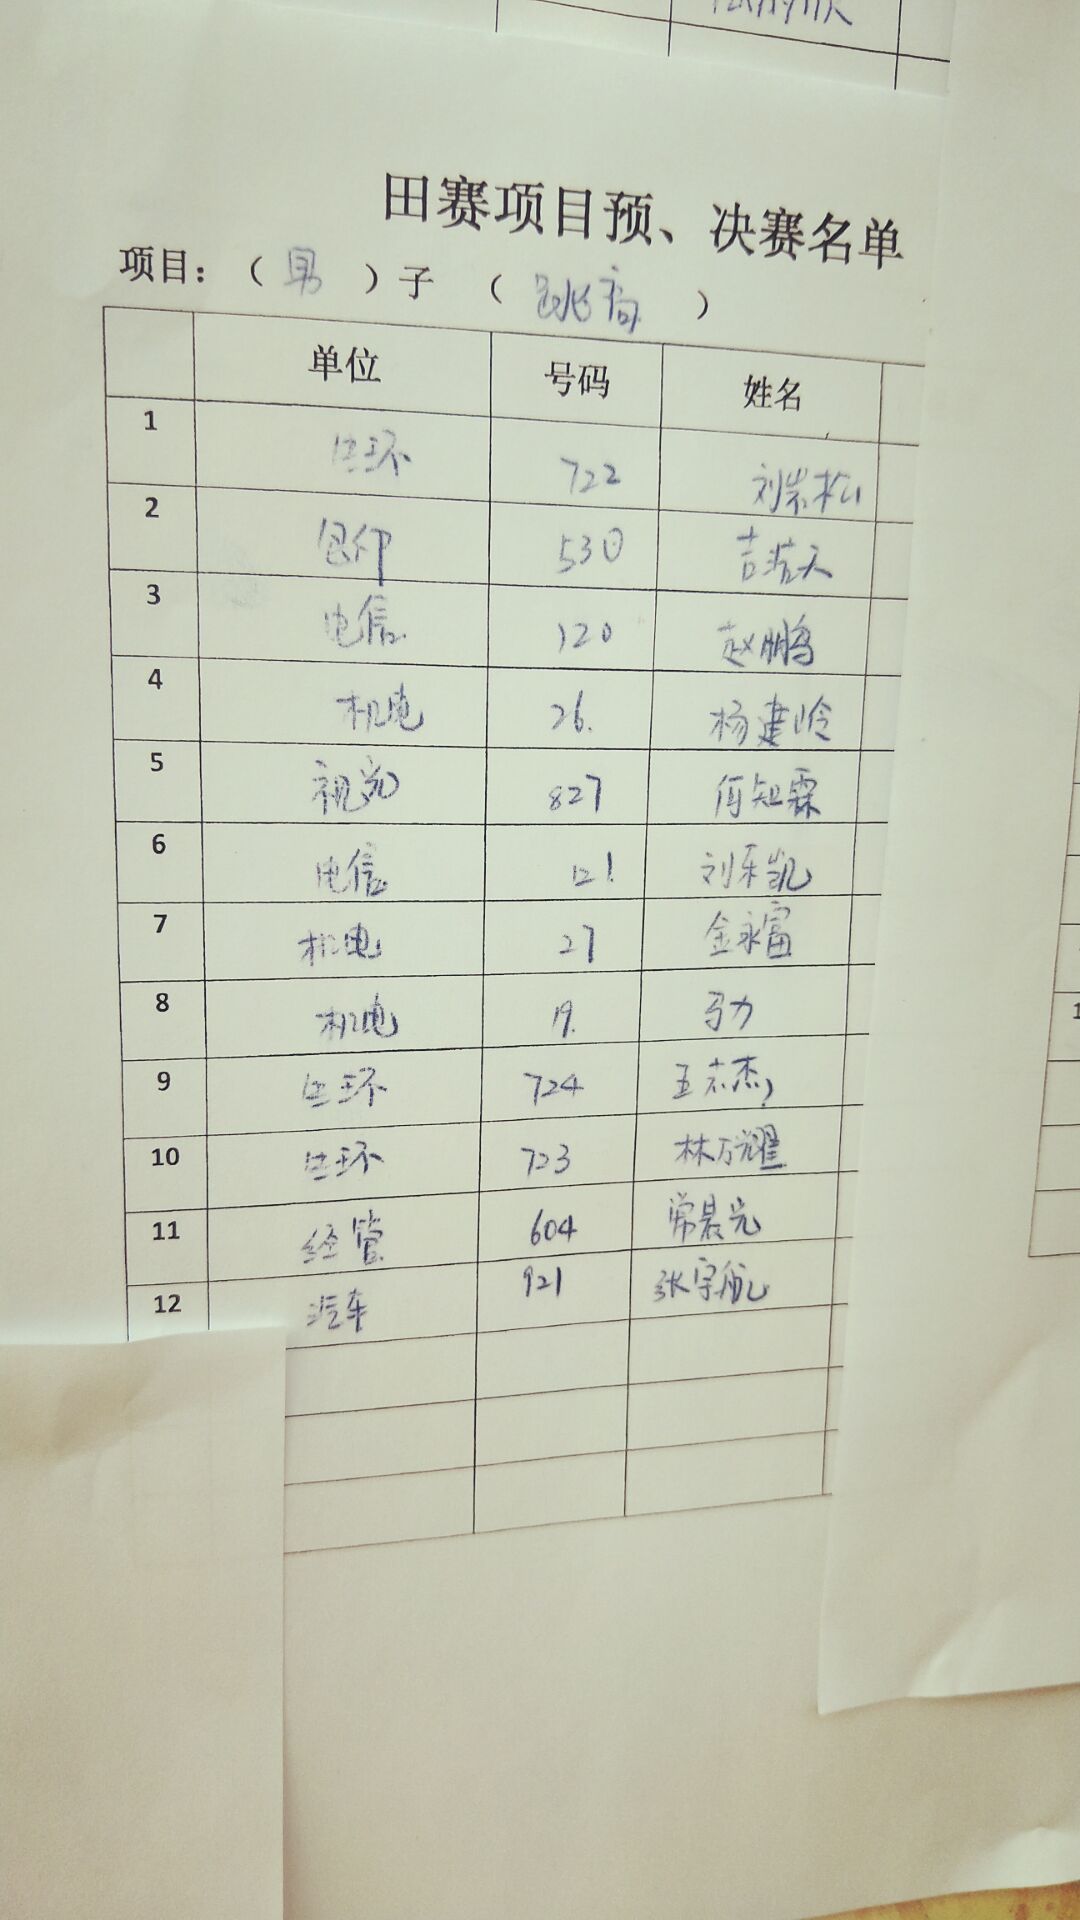 田赛项目预、决赛名单
项目：（男）子（跳高）
单位 号码 姓名
1 生环 722 刘崇松
2 包印 530 吉浩天
3 电信 120 赵鹏鸿
4 机电 26. 杨建岭
5 视觉 827 何知霖
6 电信 121. 刘乐凯
7 机电 27 金永富
8 机电 19. 马力
9 生环 724 王志杰
10 生环 723 林万耀
11 经管 604 常晨光
12 汽车 921 张宇航
1